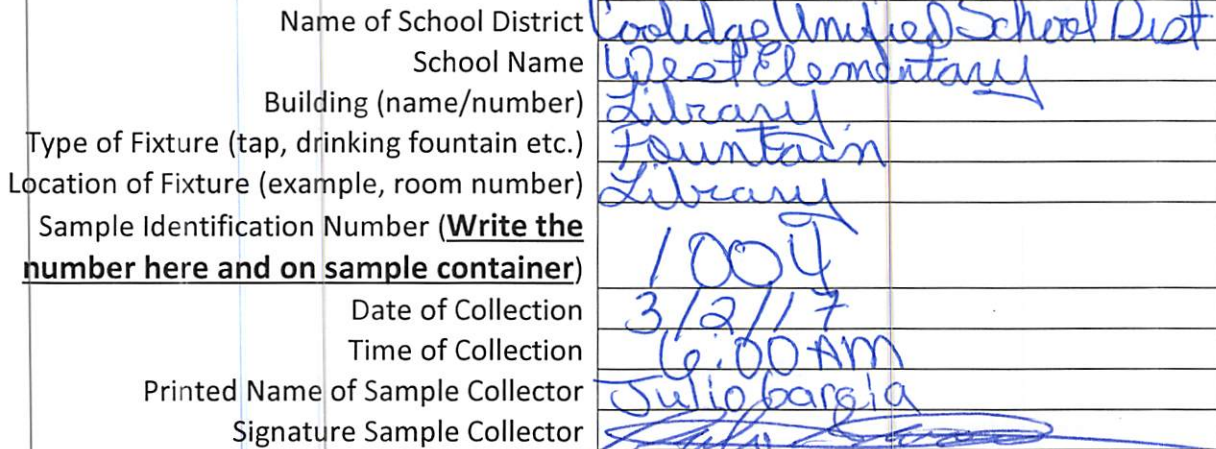 Name of School District Coolidge Unified School Dist
School Name West Elementary
Building (name/number) Library
Type of Fixture (tap, drinking fountain etc.) Fountain
Location of Fixture (example, room number) Library
Sample Identification Number (Write the
number here and on sample container) 1004
Date of Collection 3/2/17
Time of Collection 6:00 AM
Printed Name of Sample Collector Julio Garcia
Signature Sample Collector